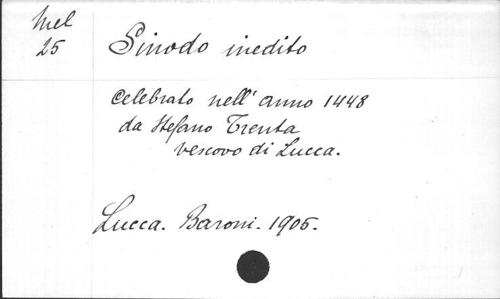 Mel
25
Sinodo inedito
celebrato nell' anno 1448
da Stefano Trenta
vescovo di Lucca.
Lucca. Baroni. 1905.